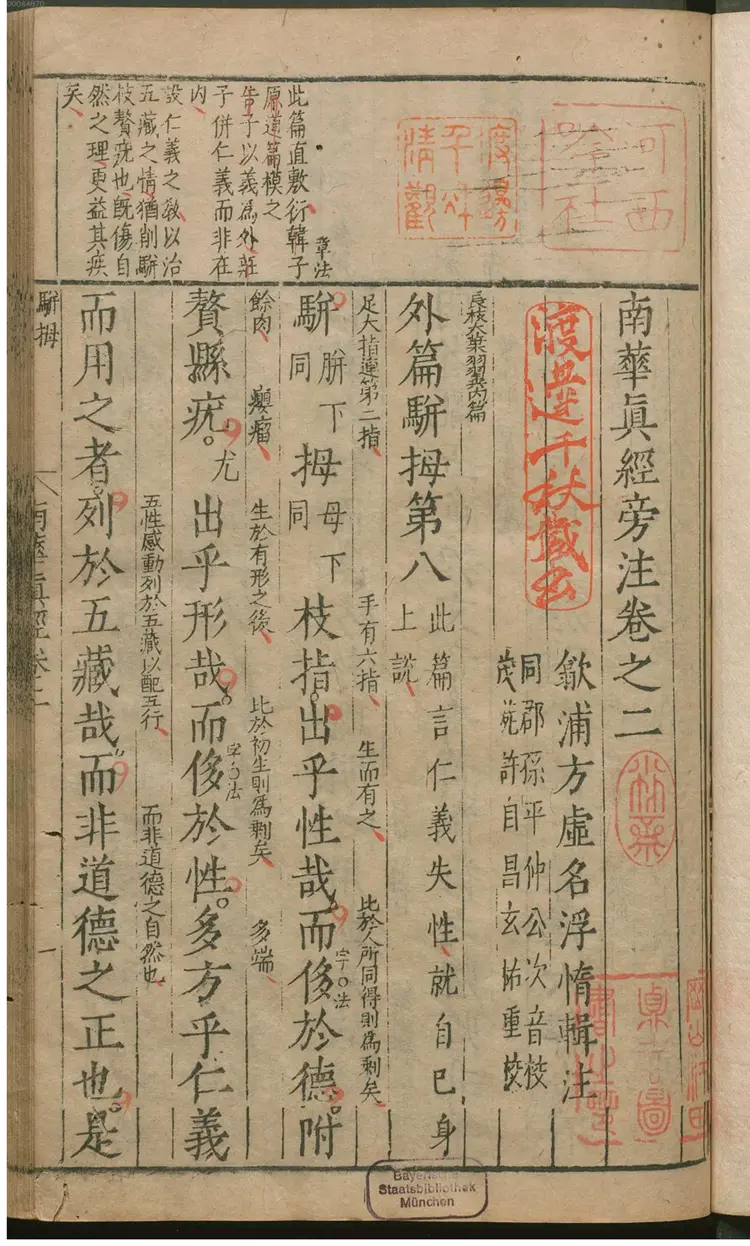 南華眞經旁注卷之二
歙浦方虛名浮惰輯注
同郡孫平仲公次音校
茂苑許自昌玄祐重校
長枝大葉羽翼內篇
外篇駢拇第八
此篇言仁義失性就自己身
上說
足大指連第二指
手有六指
生而有之
比於人所同得則爲剩矣
駢胼下同拇母下同枝指出乎性哉而侈於德附
字法
餘肉
癭瘤
生於有形之後
比於初生則爲剩矣
多端
贅縣疣尤出乎形哉而侈於性多方乎仁義
字法
五性感動列於五藏以配五行
而非道德之自然也
而用之者列於五藏哉而非道德之正也是
章法
此篇直敷衍韓子
原道篇模之
告子以義爲外莊
子併仁義而非在
內
設仁義之敎以治
五藏之情猶削駢
枝贅疣也旣傷自
然之理更益其疾
矣
駢拇
南華眞經卷二
渡邊千秋藏書
Bayerische
Staatsbibliothek
München